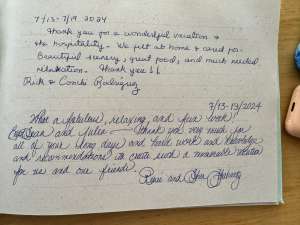 7/13-7/19 2024
Thank you for a wonderful vacation &
the hospitality. We felt at home & cared for.
Beautiful scenery, great food, and much needed
relaxation. Thank you!!
Rick & Rodriguez
7/13-19/2024
What a fabulous, relaxing, and fun week!
and Julia - Thank you very much for
all of your long days and hard work and knowledge
and recommendations to create such a memorable vacation
for us and our friends.
and